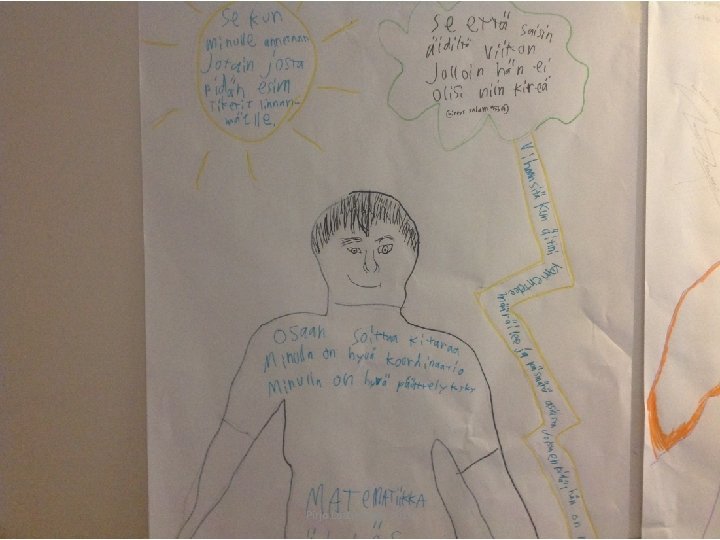 Se kun
minulle annetaan
Jotain josta
Pidän esim
Tiketit linnan-
mäelle.
se että saisin
äidiltä viikon
Jolloin hän ei
olisi niin kireä
Vihaan sitä kun äitini komentelee
määräilee ja
hän on
OSaan soittaa kitaraa
Minulla on hyvä koordinaatio
Minulla on hyvä päättelykyky
MATEMATIIKKA